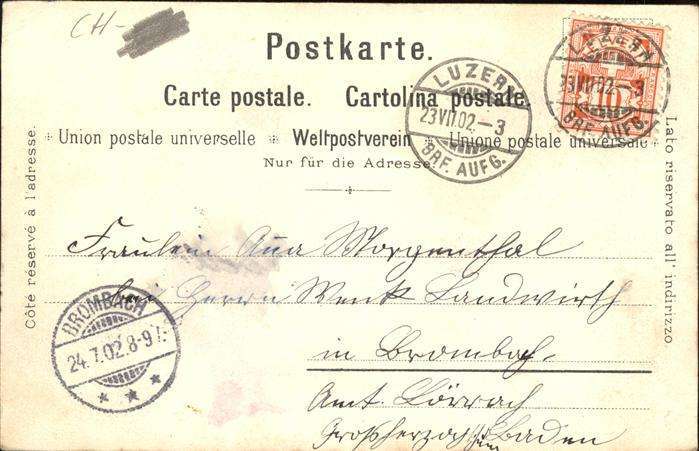 CH-
Postkarte.
Carte postale. Cartolina postale.
Union postale universelle Weltpostverein Unione postale universale
Nur für die Adresse
Côté réservé à l'adresse.
Lato riservato all' indirizzo.
LUZERN
23.VII.02.–3
BRF. AUFG.
LUZERN
23.VII.02.–3
10
BRF. AUFG.
Fräulein Anna Morgenthal
bei Herrn Wenk Landwirth
in Brombach.
Amt. Lörrach
Grossherzog Baden
BROMBACH
24.7.02.8-9V.